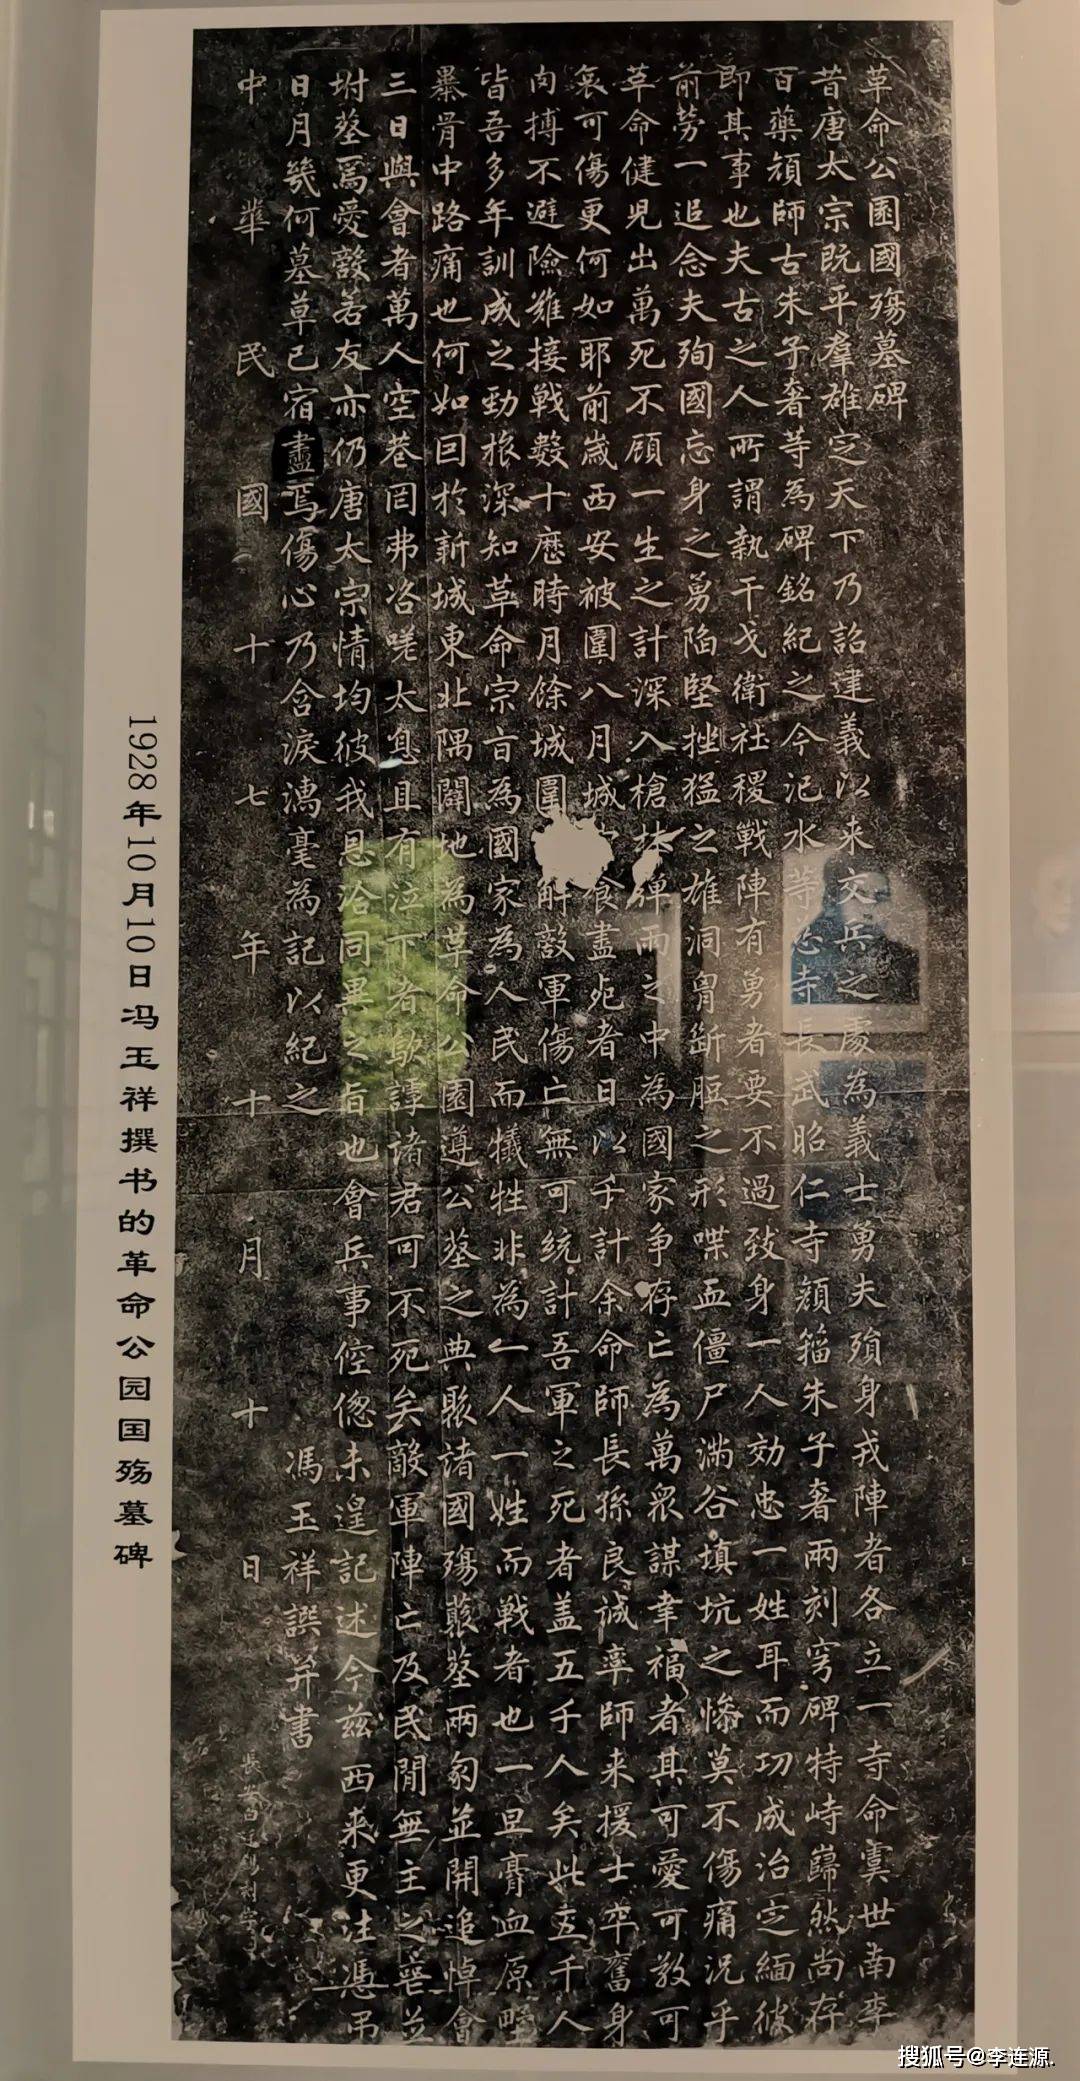 革命公園國殤墓碑
昔唐太宗既平羣雄定天下乃詔建義以来交兵之處為義士勇夫殞身戎陣者各立一寺命虞世南李
百藥顏師古朱子奢等為碑銘紀之今汜水等慈寺長武昭仁寺顏籀朱子奢兩刻穹碑特峙巋然尚存
即其事也夫古之人所謂執干戈衛社稷戰陣有勇者要不過致身一人効忠一姓耳而功成治定緬彼
前勞一追念夫殉國忘身之勇陷堅挫猛之雄洞胷斷脰之形喋血僵尸滿谷填坑之慘莫不傷痛況乎
革命健兒出萬死不顧一生之計深入槍林彈雨之中為國家争存亡為萬衆謀幸福者其可愛可敬可
哀可傷更何如耶前歲西安被圍八月城食盡死者日以千計余命師長孫良誠率師来援士卒奮身
肉搏不避險難接戰數十歷時月餘城圍解敵軍傷亡無可統計吾軍之死者盖五千人矣此五千人
皆吾多年訓成之勁旅深知革命宗旨為國家為人民而犧牲非為一人一姓而戰者也一旦膏血原野
暴骨中路痛也何如囙於新城東北隅闢地為革命公園遵公墓之典厝諸國殤叢塟兩旁並開追悼會
三日與會者萬人空巷罔弗咨嗟太息且有泣下者歔諸君可不死矣敵軍陣亡及民間無主之並
坿塟焉愛敵若友亦仍唐太宗情均彼我恩洽同異之旨也會兵事倥偬未遑記述今茲西来更注憑吊
日月幾何墓草已宿盡焉傷心乃含淚濡毫為記以紀之 馮玉祥譔并書
中華民國十七年十月十日
長安
1928年10月10日冯玉祥撰书的革命公园国殇墓碑
搜狐号@李连源.